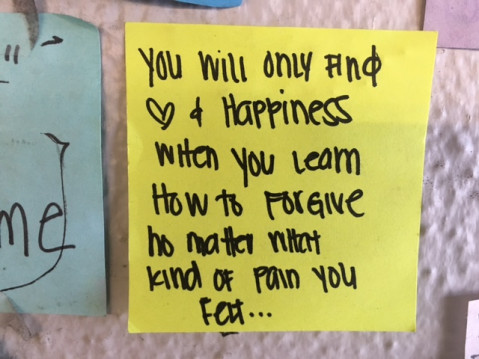 me
You will only find
♡ & Happiness
when you learn
How to Forgive
no matter what
kind of pain you
Felt...